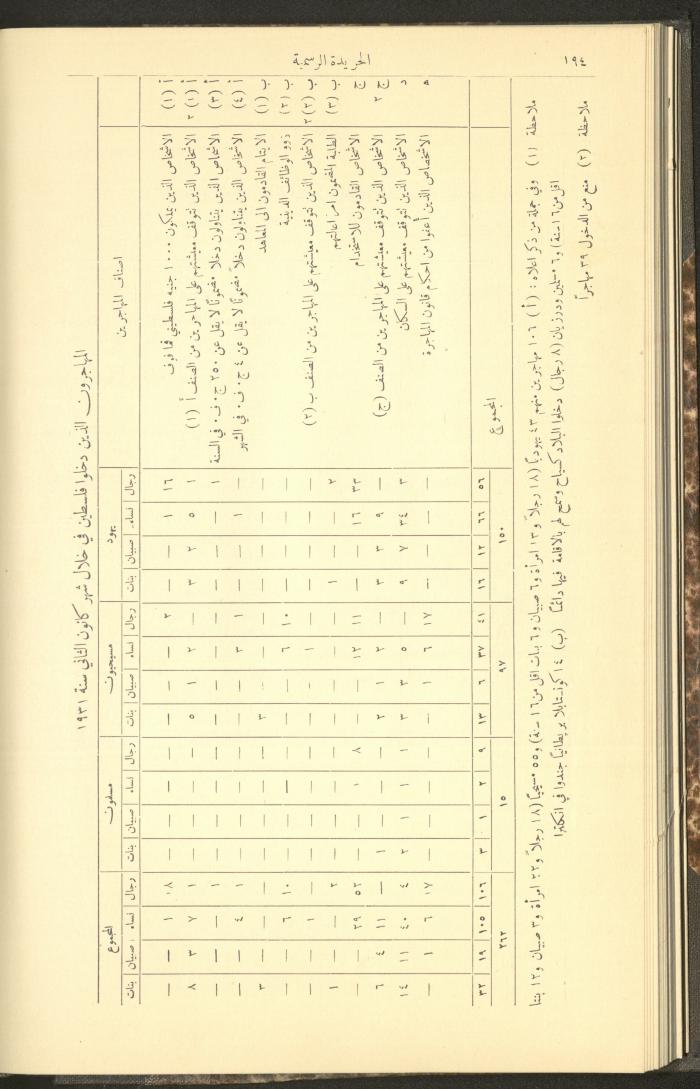 ١٩٤
الجريدة الرسمية
المهاجرون الذين دخلوا فلسطين في خلال شهر كانون الثاني سنة ١٩٣١
اصناف المهاجرين يهود مسيحيون مسلمون المجموع
رجال نساء صبيان بنات رجال نساء صبيان بنات رجال نساء صبيان بنات رجال نساء صبيان بنات
أ (١) الاشخاص الذين يملكون ١٠٠٠ جنيه فلسطيني فما فوق ١٦ ١ — — ٢ — — — — — — — ١٨ ١ — —
أ (١) ٢ الاشخاص الذين تتوقف معيشتهم على المهاجرين من الصنف أ (١) ١ ٥ ٢ ٣ — ٢ ١ ٥ — — — — ١ ٧ ٣ ٨
أ (٣) الاشخاص الذين يتناولون دخلاً مضمونًا لا يقل عن ٢٥٠ ج. ف. في السنة ١ — — — — — — — — — — — ١ — — —
أ (٤) الاشخاص الذين يتناولون دخلاً مضمونًا لا يقل عن ٤ ج. ف. في الشهر — ١ — — ١ ٣ — — — — — — ١ ٤ — —
ب (١) الايتام القادمون الى المعاهد — — — — — — — ٣ — — — — — — — ٣
ب (٢) ذوو الوظائف الدينية — — — — ١٠ ٦ — — — — — — ١٠ ٦ — —
ب (٢) ٢ الاشخاص الذين تتوقف معيشتهم على المهاجرين من الصنف ب (٢) — — — — — ١ — — — — — — — ١ — —
ب (٣) الطلبة المضمون امر اعالتهم ٢ — — ١ — — — — — — — — ٢ — — ١
ج الاشخاص القادمون للاستخدام ٣٣ ١٦ — — ١١ ١٢ — — ٨ ١ — — ٥٢ ٢٩ — —
ج ٢ الاشخاص الذين تتوقف معيشتهم على المهاجرين من الصنف (ج) — ٩ ٣ ٣ — ٢ ١ ٢ — — — ١ — ١١ ٤ ٦
د الاشخاص الذين تتوقف معيشتهم على السكان ٣ ٣٤ ٧ ٩ — ٥ ٣ ٣ ١ ١ ١ ٢ ٤ ٤٠ ١١ ١٤
ه الاشخاص الذين أعفوا من احكام قانون المهاجرة — — — — ١٧ ٦ ١ — — — — — ١٧ ٦ ١ —
المجموع ٥٦ ٦٦ ١٢ ١٦ ٤١ ٣٧ ٦ ١٣ ٩ ٢ ١ ٣ ١٠٦ ١٠٥ ١٩ ٣٢
١٥٠ ٩٧ ١٥ ٢٦٢
ملاحظة (١) وفي جملة من ذكر اعلاه : (أ) ١٠٦ مهاجرين منهم ٤٣ يهوديًا (١٨ رجلاً و١٣ امرأة و٦ صبيان و٦ بنات اقل من ١٦ سنة) و٥٥ مسيحيًا (١٨ رجلاً و٢٢ امرأة و٣ صبيان و١٢ بنتا
اقل من ١٦ سنة) و٦ مسلمين ودرزيان (٨ رجال) دخلوا البلاد كسياح وسمح لهم بالاقامة فيها دائمًا (ب) ١٤ كونستابلا بريطانيًا جندوا في انكلترا
ملاحظة (٢) منع من الدخول ٣٩ مهاجراً